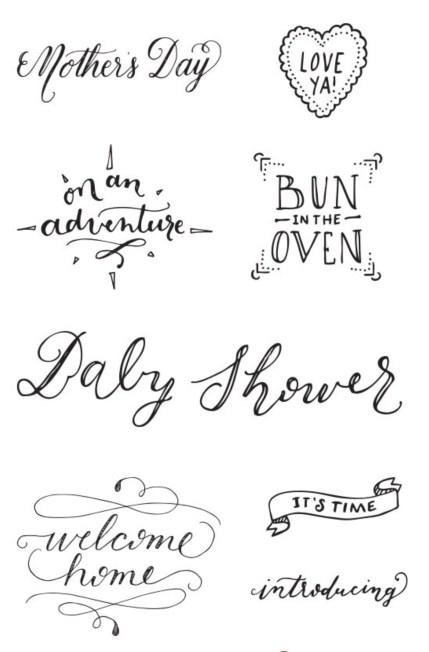 Mother's Day
LOVE
YA!
on an
adventure
BUN
IN THE
OVEN
Baby Shower
welcome
home
IT'S TIME
introducing